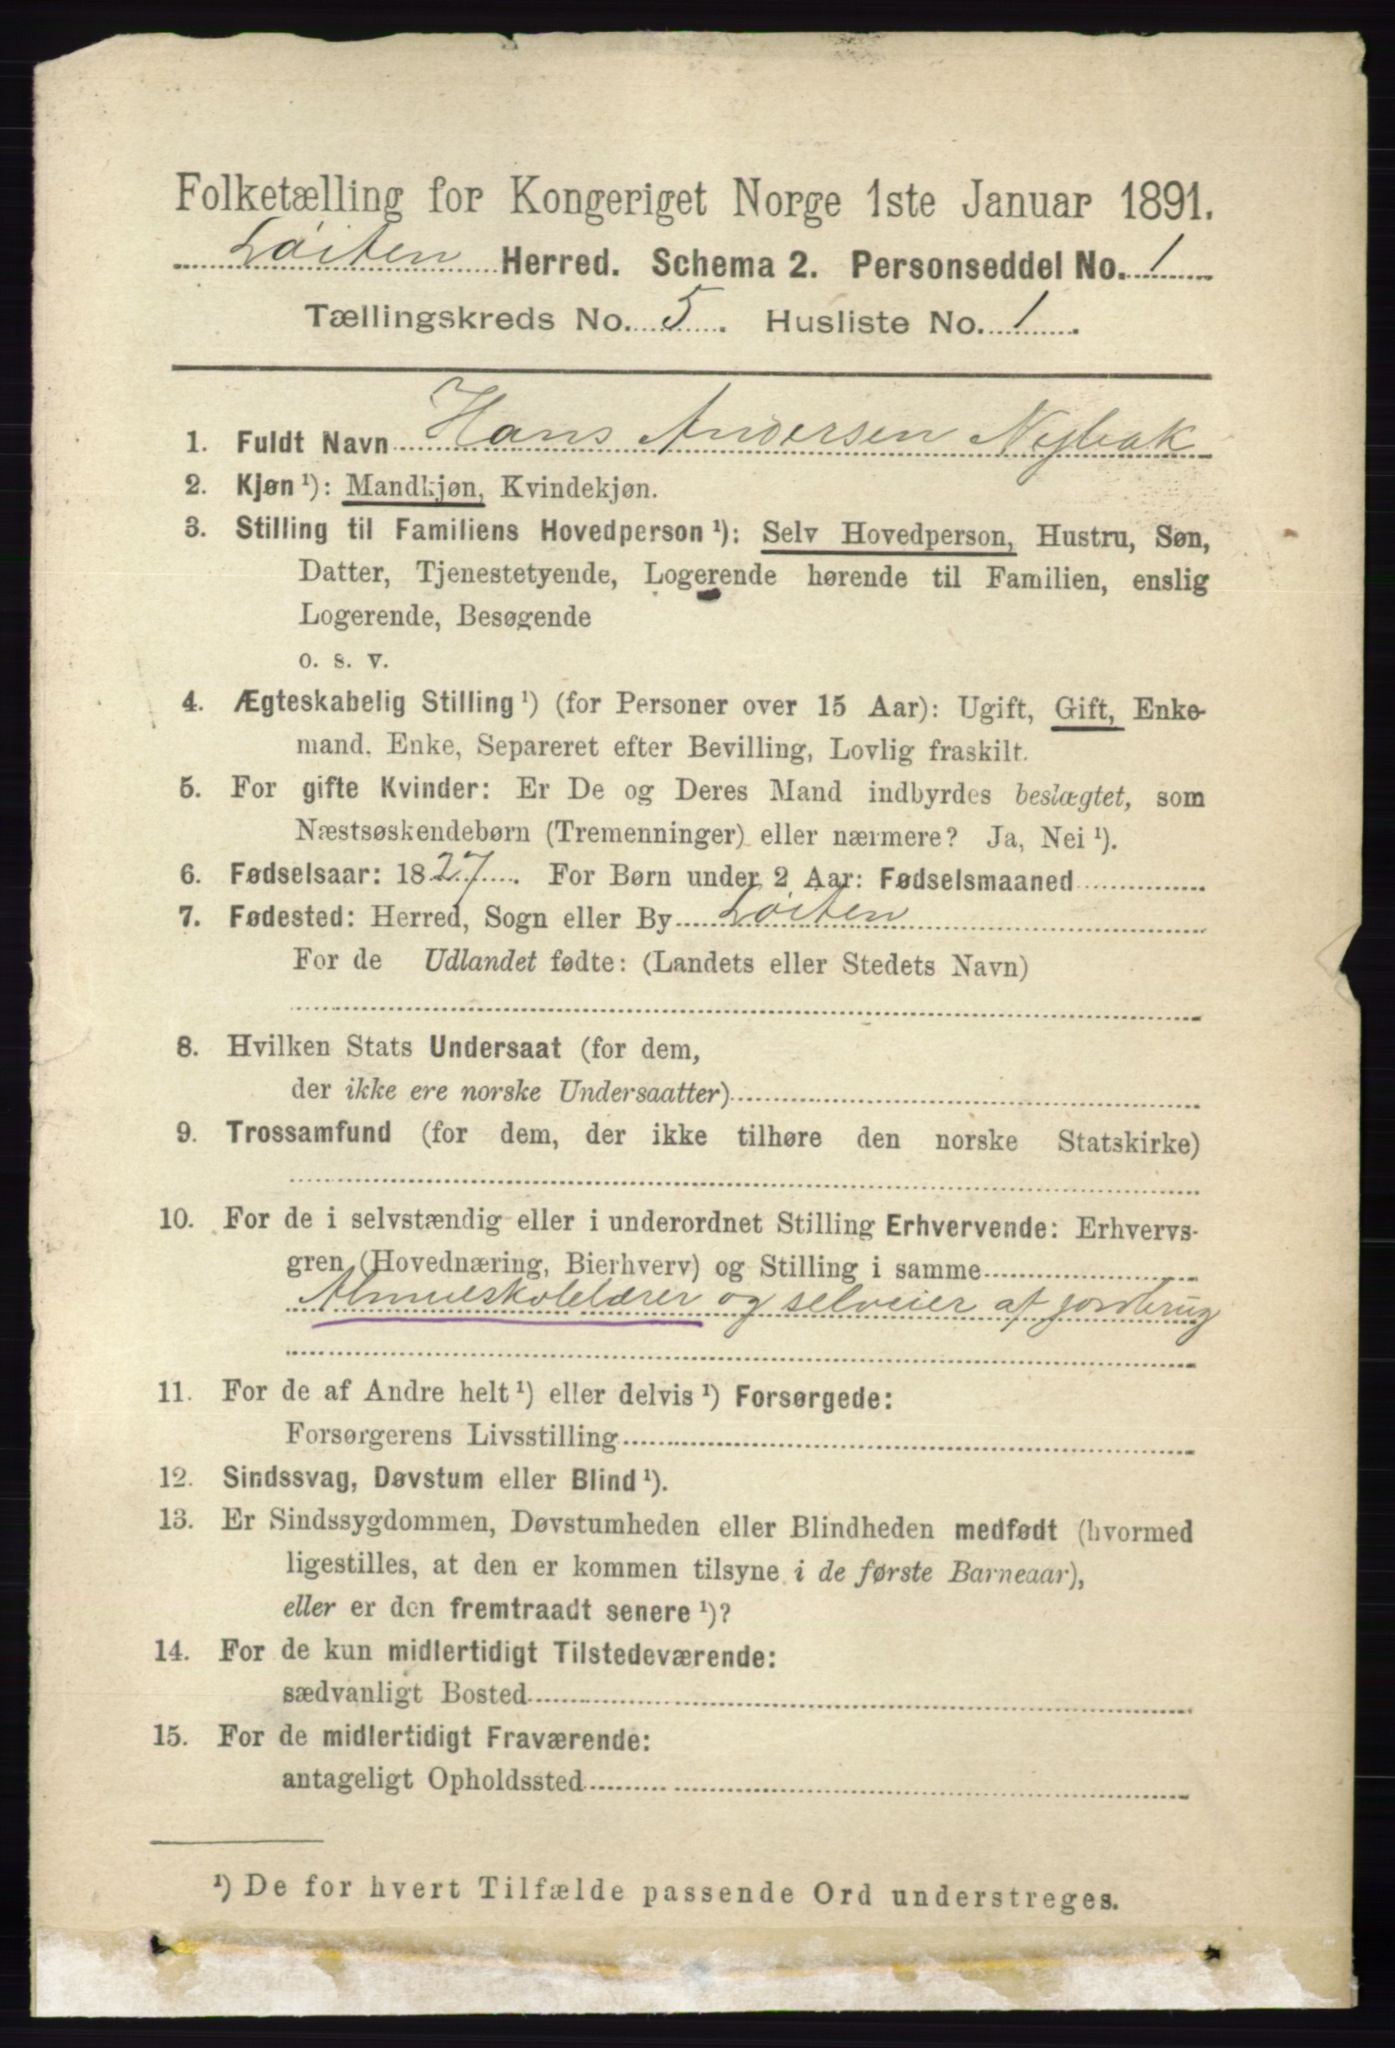 Folketælling for Kongeriget Norge 1ste Januar 1891.
Løiten Herred. Schema 2. Personseddel No. 1
Tællingskreds No. 5. Husliste No. 1.
1. Fuldt Navn Hans Andersen Nybak
2. Kjøn ¹): Mandkjøn, Kvindekjøn.
3. Stilling til Familiens Hovedperson ¹): Selv Hovedperson, Hustru, Søn,
Datter, Tjenestetyende, Logerende hørende til Familien, enslig
Logerende, Besøgende
o. s. v.
4. Ægteskabelig Stilling ¹) (for Personer over 15 Aar): Ugift, Gift, Enke-
mand, Enke, Separeret efter Bevilling, Lovlig fraskilt.
5. For gifte Kvinder: Er De og Deres Mand indbyrdes beslægtet, som
Næstsøskendebørn (Tremenninger) eller nærmere? Ja, Nei ¹).
6. Fødselsaar: 1827. For Børn under 2 Aar: Fødselsmaaned
7. Fødested: Herred, Sogn eller By Løiten
For de Udlandet fødte: (Landets eller Stedets Navn)
8. Hvilken Stats Undersaat (for dem,
der ikke ere norske Undersaatter)
9. Trossamfund (for dem, der ikke tilhøre den norske Statskirke)
10. For de i selvstændig eller i underordnet Stilling Erhvervende: Erhvervs-
gren (Hovednæring, Bierhverv) og Stilling i samme
Almueskolelærer og selveier af jordbrug
11. For de af Andre helt ¹) eller delvis ¹) Forsørgede:
Forsørgerens Livsstilling
12. Sindssvag, Døvstum eller Blind ¹).
13. Er Sindssygdommen, Døvstumheden eller Blindheden medfødt (hvormed
ligestilles, at den er kommen tilsyne i de første Barneaar),
eller er den fremtraadt senere ¹)?
14. For de kun midlertidigt Tilstedeværende:
sædvanligt Bosted
15. For de midlertidigt Fraværende:
antageligt Opholdssted
¹) De for hvert Tilfælde passende Ord understreges.